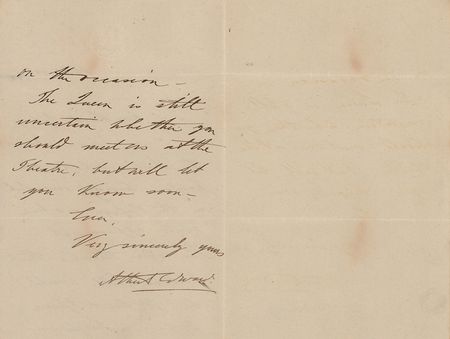 on the occasion —
The Queen is still
uncertain whether you
should meet us at the
Theatre, but will let
you know soon —
Ever,
Very sincerely yours
Albert Edward.